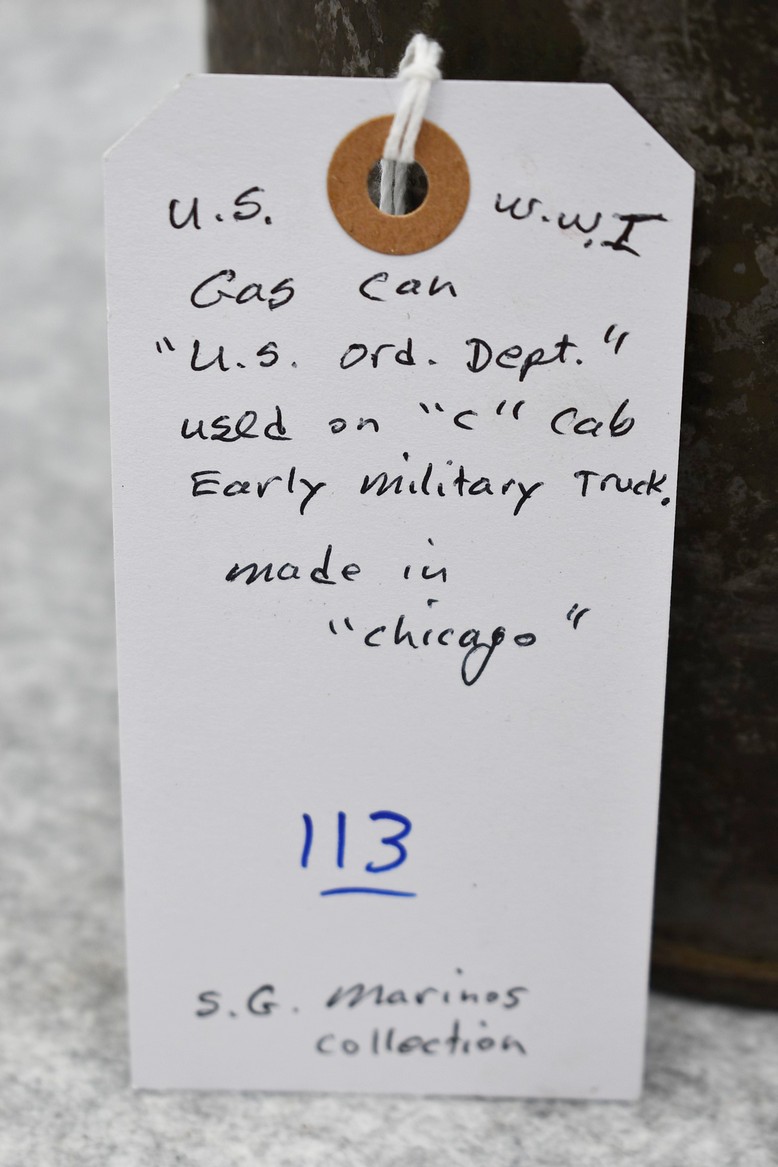 U.S. W.W.I
Gas Can
"U.S. Ord. Dept."
used on "C" Cab
Early military Truck.
made in
"chicago"
113
S.G. Marinos
collection